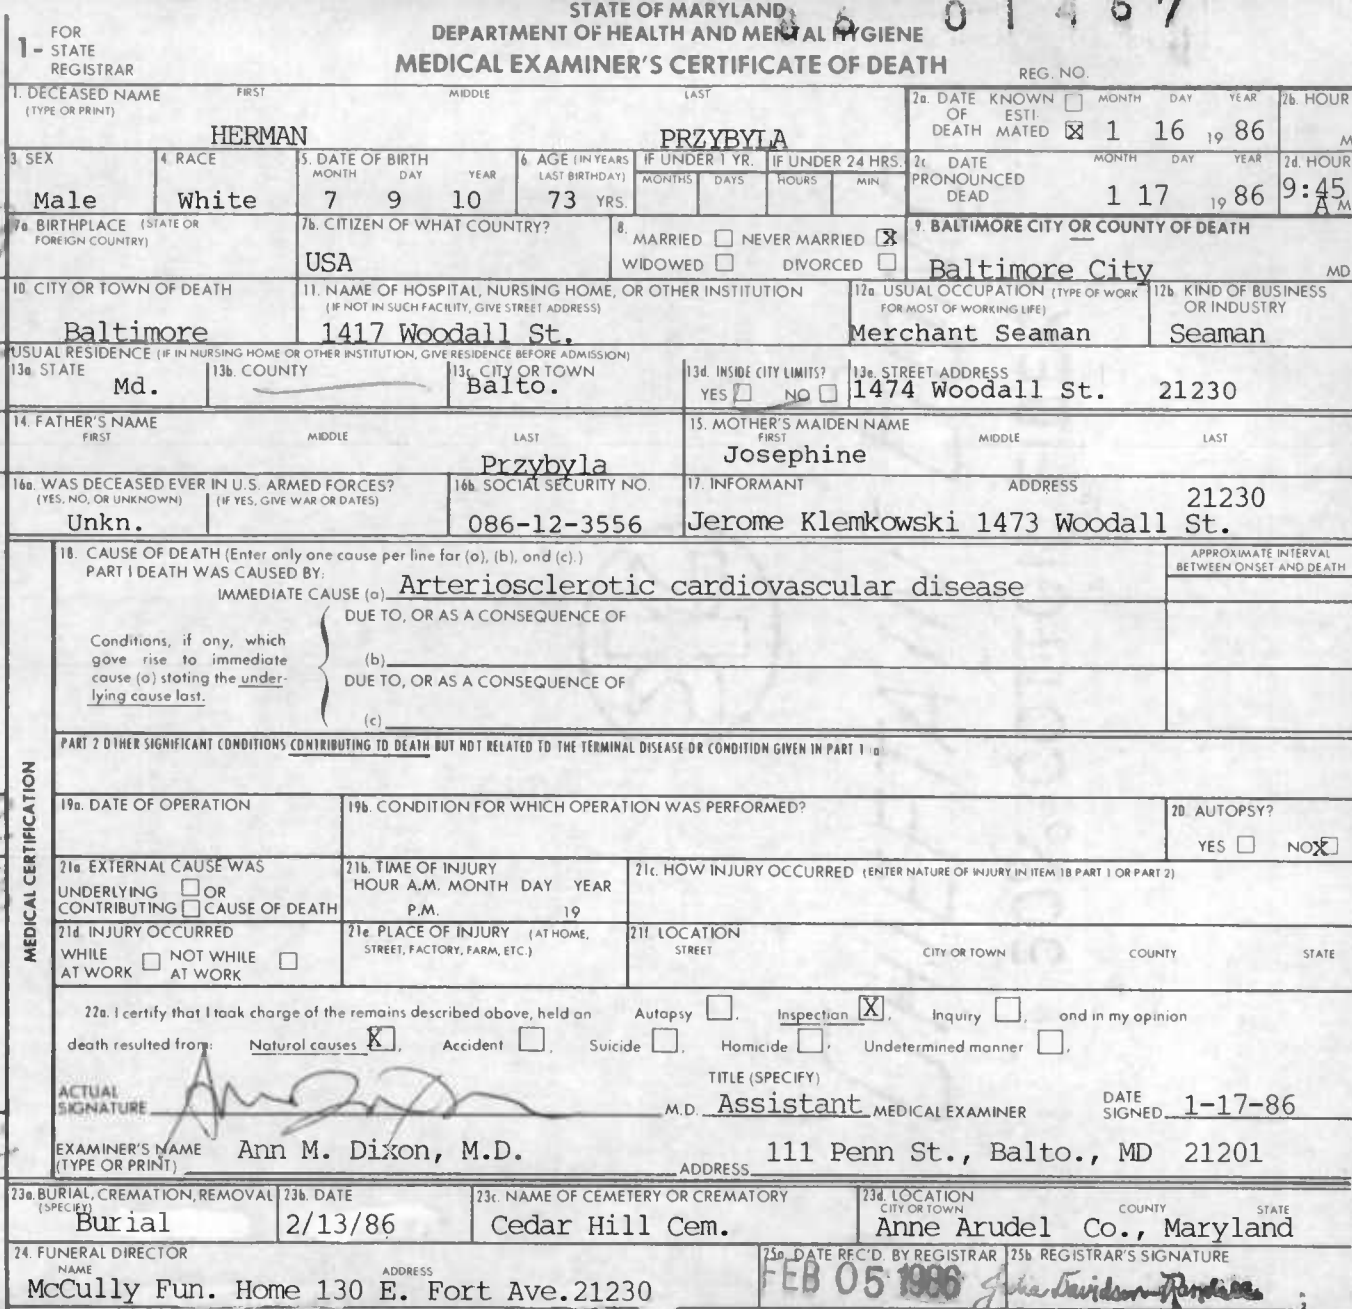 STATE OF MARYLAND
86 01467
1- FOR STATE REGISTRAR
DEPARTMENT OF HEALTH AND MENTAL HYGIENE
MEDICAL EXAMINER'S CERTIFICATE OF DEATH
REG. NO.
1. DECEASED NAME (TYPE OR PRINT) FIRST MIDDLE LAST
HERMAN PRZYBYLA
2a. DATE OF DEATH KNOWN ☐ ESTIMATED ☒ MONTH DAY YEAR
1 16 19 86
2b. HOUR M
3 SEX
Male
4 RACE
White
5. DATE OF BIRTH MONTH DAY YEAR
7 9 10
6 AGE (IN YEARS LAST BIRTHDAY)
73 YRS.
IF UNDER 1 YR. MONTHS DAYS
IF UNDER 24 HRS. HOURS MIN
2c DATE PRONOUNCED DEAD MONTH DAY YEAR
1 17 19 86
2d. HOUR
9:45 A M
7a BIRTHPLACE (STATE OR FOREIGN COUNTRY)
7b. CITIZEN OF WHAT COUNTRY?
USA
8. MARRIED ☐ NEVER MARRIED ☒
WIDOWED ☐ DIVORCED ☐
9. BALTIMORE CITY OR COUNTY OF DEATH
Baltimore City MD
10. CITY OR TOWN OF DEATH
Baltimore
11. NAME OF HOSPITAL, NURSING HOME, OR OTHER INSTITUTION
(IF NOT IN SUCH FACILITY, GIVE STREET ADDRESS)
1417 Woodall St.
12a USUAL OCCUPATION (TYPE OF WORK FOR MOST OF WORKING LIFE)
Merchant Seaman
12b. KIND OF BUSINESS OR INDUSTRY
Seaman
USUAL RESIDENCE (IF IN NURSING HOME OR OTHER INSTITUTION, GIVE RESIDENCE BEFORE ADMISSION)
13a STATE
Md.
13b. COUNTY
13c CITY OR TOWN
Balto.
13d. INSIDE CITY LIMITS?
YES ☐ NO ☐
13e. STREET ADDRESS
1474 Woodall St. 21230
14. FATHER'S NAME
FIRST MIDDLE LAST
Przybyla
15. MOTHER'S MAIDEN NAME
FIRST MIDDLE LAST
Josephine
16a. WAS DECEASED EVER IN U.S. ARMED FORCES?
(YES, NO, OR UNKNOWN) (IF YES, GIVE WAR OR DATES)
Unkn.
16b. SOCIAL SECURITY NO.
086-12-3556
17. INFORMANT ADDRESS
21230
Jerome Klemkowski 1473 Woodall St.
MEDICAL CERTIFICATION
18. CAUSE OF DEATH (Enter only one cause per line for (a), (b), and (c).)
PART I DEATH WAS CAUSED BY:
IMMEDIATE CAUSE (a) Arteriosclerotic cardiovascular disease
APPROXIMATE INTERVAL BETWEEN ONSET AND DEATH
Conditions, if any, which gove rise to immediate cause (a) stating the underlying cause last.
DUE TO, OR AS A CONSEQUENCE OF
(b)
DUE TO, OR AS A CONSEQUENCE OF
(c)
PART 2 OTHER SIGNIFICANT CONDITIONS CONTRIBUTING TO DEATH BUT NOT RELATED TO THE TERMINAL DISEASE OR CONDITION GIVEN IN PART 1 a
19a. DATE OF OPERATION
19b. CONDITION FOR WHICH OPERATION WAS PERFORMED?
20 AUTOPSY?
YES ☐ NO ☒
21a EXTERNAL CAUSE WAS
UNDERLYING ☐ OR
CONTRIBUTING ☐ CAUSE OF DEATH
21b. TIME OF INJURY
HOUR A.M. MONTH DAY YEAR
P.M. 19
21c. HOW INJURY OCCURRED (ENTER NATURE OF INJURY IN ITEM 18 PART 1 OR PART 2)
21d INJURY OCCURRED
WHILE AT WORK ☐ NOT WHILE AT WORK ☐
21e PLACE OF INJURY (AT HOME, STREET, FACTORY, FARM, ETC.)
21f LOCATION
STREET CITY OR TOWN COUNTY STATE
22a. I certify that I took charge of the remains described above, held an Autopsy ☐, Inspection ☒, Inquiry ☐, and in my opinion
death resulted from: Natural causes ☒, Accident ☐, Suicide ☐, Homicide ☐, Undetermined manner ☐,
ACTUAL SIGNATURE
M.D.
TITLE (SPECIFY)
Assistant MEDICAL EXAMINER
DATE SIGNED 1-17-86
EXAMINER'S NAME (TYPE OR PRINT) Ann M. Dixon, M.D.
ADDRESS 111 Penn St., Balto., MD 21201
23a. BURIAL, CREMATION, REMOVAL (SPECIFY)
Burial
23b. DATE
2/13/86
23c. NAME OF CEMETERY OR CREMATORY
Cedar Hill Cem.
23d. LOCATION
CITY OR TOWN COUNTY STATE
Anne Arudel Co., Maryland
24. FUNERAL DIRECTOR
NAME ADDRESS
McCully Fun. Home 130 E. Fort Ave.21230
25a. DATE REC'D. BY REGISTRAR
FEB 05 1986
25b REGISTRAR'S SIGNATURE
Julia Davidson-Randall